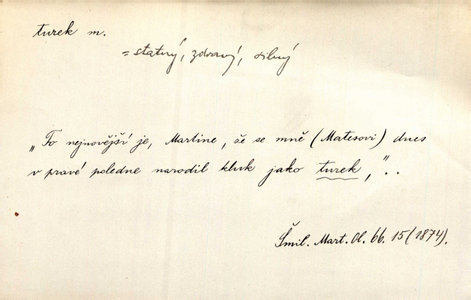 turek m.
= statný, zdravý, silný
„To nejnovější je, Martine, že se mně (Matesovi) dnes
v pravé poledne narodil kluk jako turek,"..
Šmil. Mart. Ol. 66. 15 (1874).